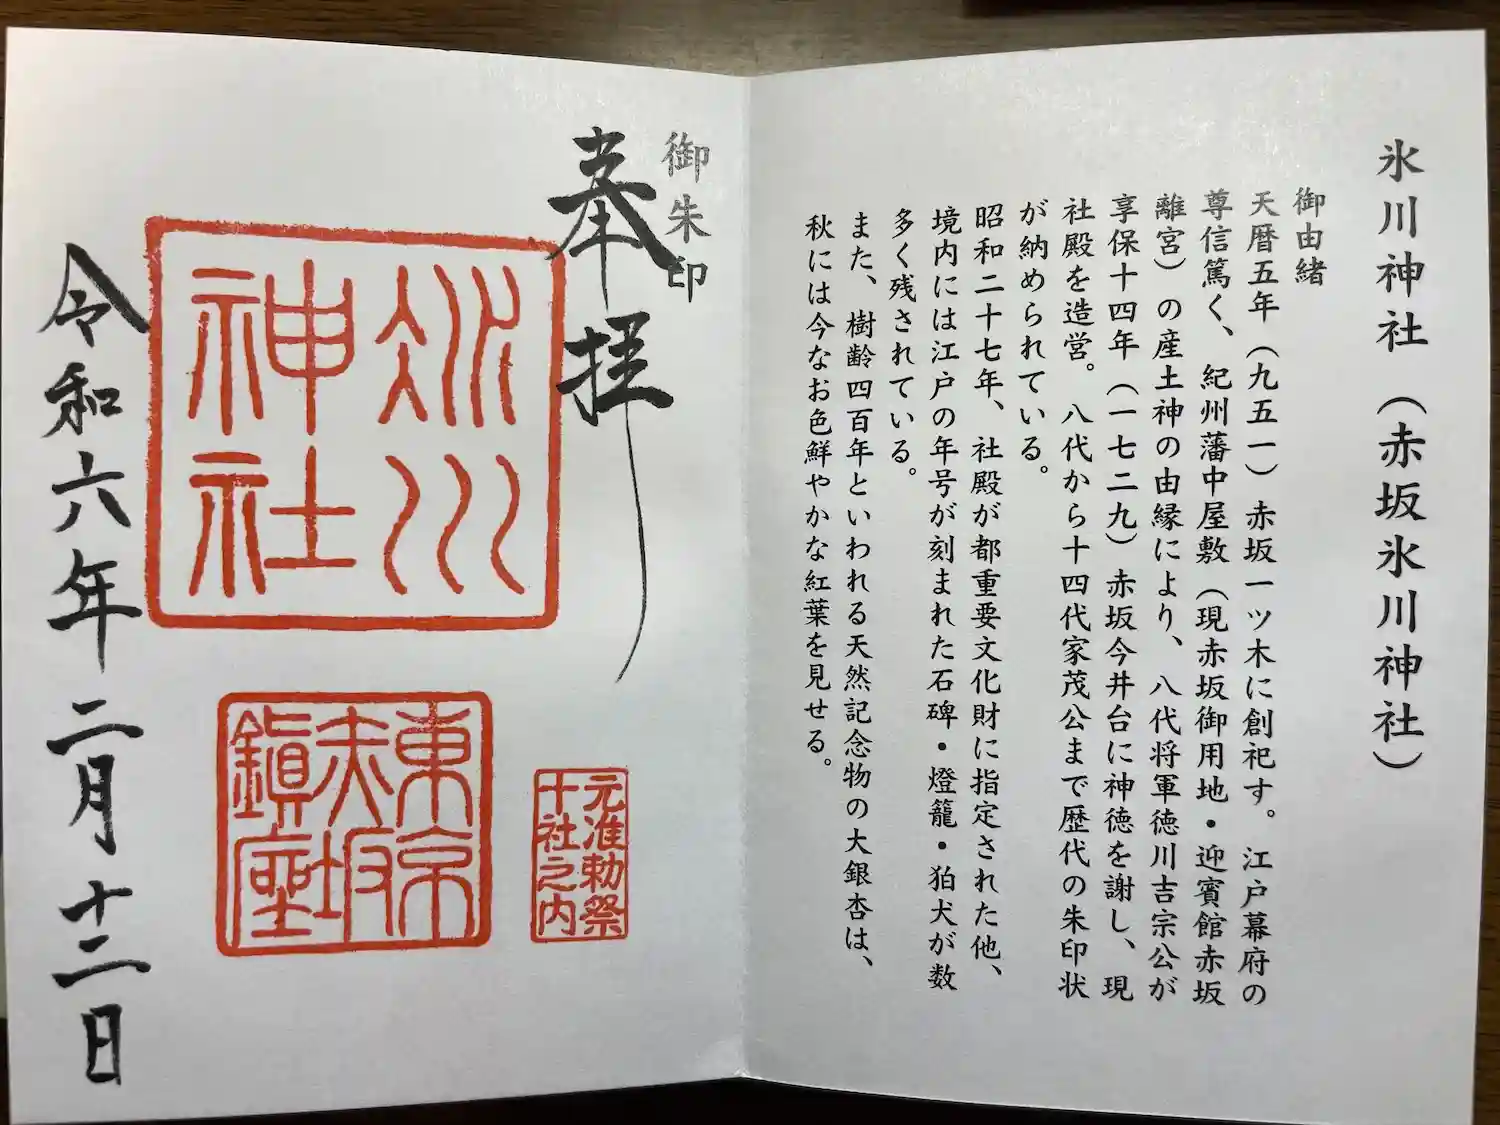 氷川神社（赤坂氷川神社）
御由緒
天暦五年（九五一）赤坂一ツ木に創祀す。江戸幕府の
尊信篤く、紀州藩中屋敷（現赤坂御用地・迎賓館赤坂
離宮）の産土神の由縁により、八代将軍徳川吉宗公が
享保十四年（一七二九）赤坂今井台に神徳を謝し、現
社殿を造営。八代から十四代家茂公まで歴代の朱印状
が納められている。
昭和二十七年、社殿が都重要文化財に指定された他、
境内には江戸の年号が刻まれた石碑・燈籠・狛犬が数
多く残されている。
また、樹齢四百年といわれる天然記念物の大銀杏は、
秋には今なお色鮮やかな紅葉を見せる。
御朱印
奉拝
氷川
神社
元准勅祭
十社之内
東京
赤坂
鎮座
令和六年二月十二日